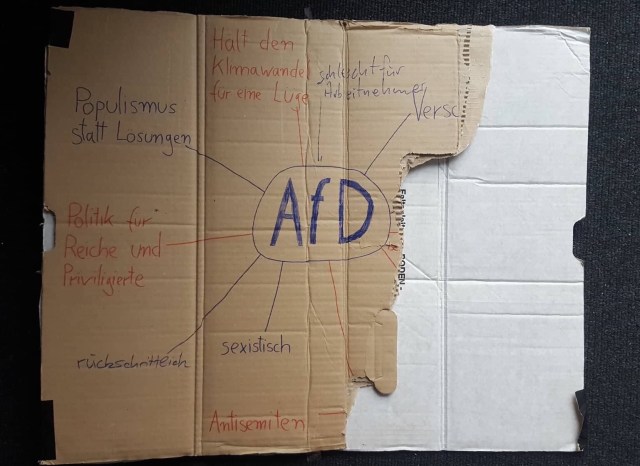 Hält den
Klimawandel
für eine Lüge
schlecht für
Arbeitnehmer
Versc
Populismus
statt Lösungen
AfD
Politik für
Reiche und
Priviligierte
rückschrittleich
sexistisch
Antisemiten
BODEN